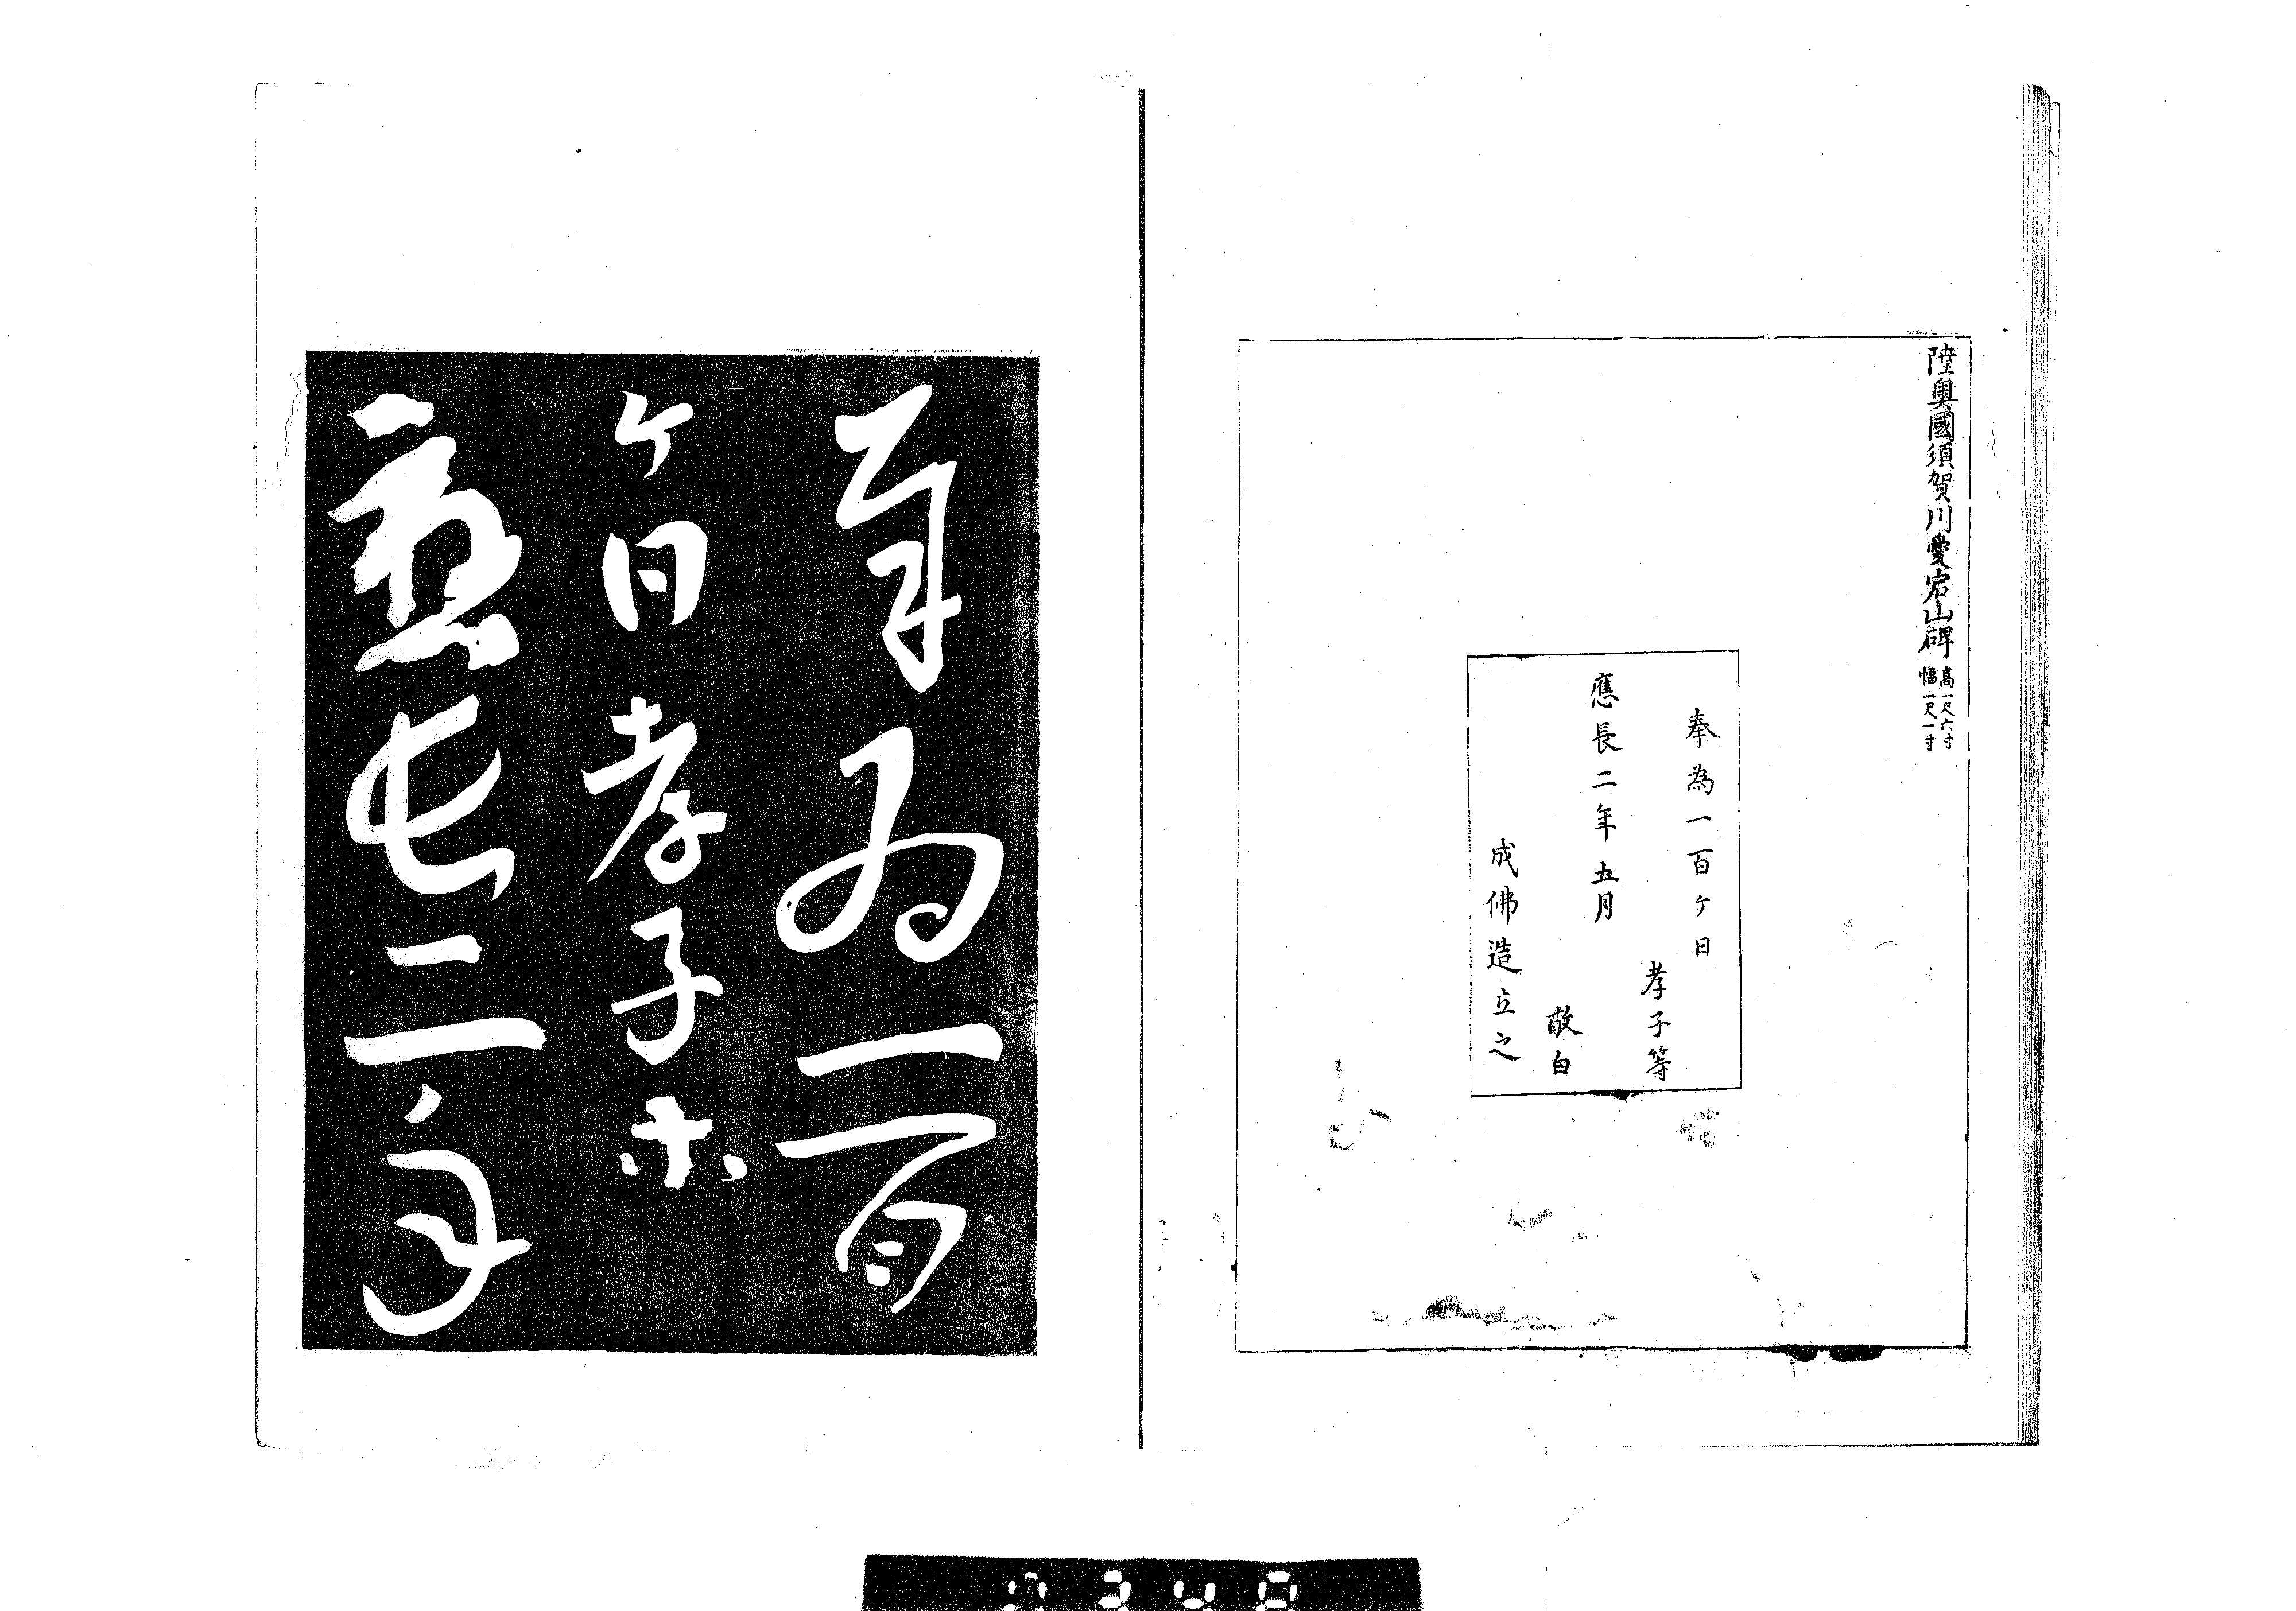 陸奥國須賀川愛宕山碑
高一尺六寸
幅一尺一寸
奉為一百ケ日
孝子等
應長二年五月
敬白
成佛造立之
奉為一百
ケ日孝子ホ
應長二年